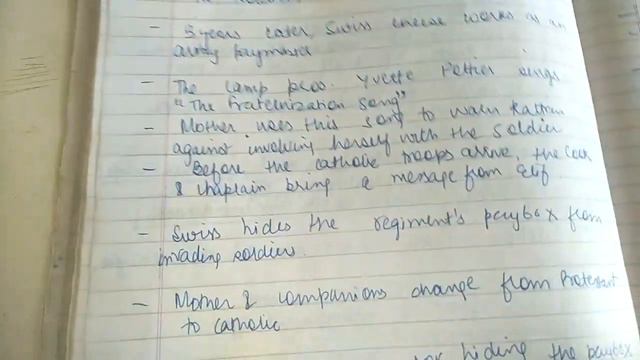 - 3 years later, Swiss cheese works as an
army paymaster
- The camp pros. Yvette Pottier sings
"The Fraternization Song"
- Mother uses this song to warn Kattrin
against involving herself with the soldier
- Before the catholic troops arrive, the Cook
& chaplain bring a message from Eilif.
- Swiss hides the regiment's paybox from
invading soldiers.
- Mother & companions change from Protestant
to catholic
hiding the paybox